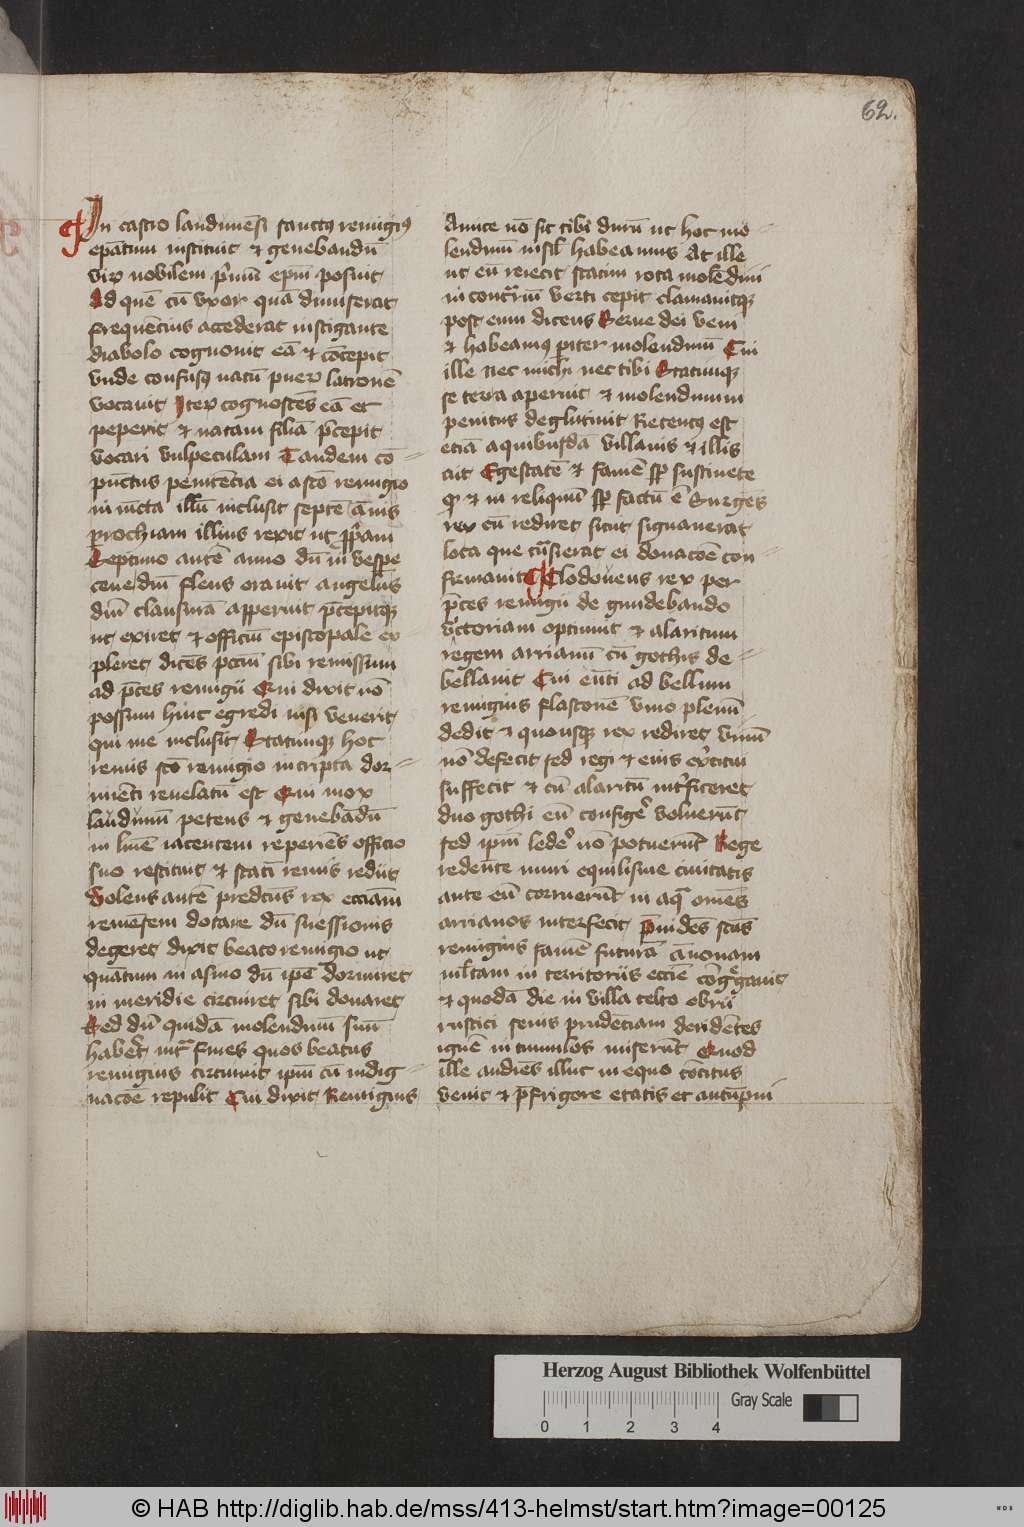 62.
In castro laudunensi sanctus remigius
epatum instituit et genebandū
virū nobilem primū epm posuit
Ad quē cū vxor quā dimiserat
frequēcius accederat instigante
diabolo cognouit eā et cōcepit
vnde confusus natū puerū latronē
vocauit Iterū cognoscēs eā et
peperit et natam filiā p̄cepit
vocari vulpeculam Tandem cō-
punctus penitēcia ei a sc̄o remigio
iniūcta illū inclusit septē annis
prochiam illius rexit ut propriam
Septimo autē anno dū in vespe
cene dni flens orauit angelus
dni clausurā apperuit p̄cepitque
ut exiret et officiū episcopale ex-
pleret dicēs pctm̄ sibi remissum
ad p̄ces remigii Qui dixit nō
possum hinc egredi nisi venerit
qui me inclusit Statimque hoc
remis sc̄o remigio in cripta dor-
mienti reuelatū est Qui mox
laudunū petens et genebādū
in limē iacentem reperiēs officio
suo restituit et statī remis rediit
Volens autē predictus rex ecciām
remēsem dotare dū suessionis
degeret dixit beato remigio ut
quātum in asino dū ipe dormiret
in meridie circuiret sibi donaret
Sed dū quidā molendinū suū
haberet intra fines quos beatus
remigius circuiuit ipm cū indig-
nacōe repulit Cui dixit Remigius
Amice nō sit tibi durū ut hoc mo-
lendinū nisil habeamus At ille
ut eū reiecit statim rota molēdini
in contrariū verti cepit clamauitque
post eum dicens Serue dei veni
et habeamus pariter molendinū Cui
ille nec michi nec tibi Statimque
se terra aperuit et molendinum
penitus deglutiuit Retentus est
etiā a quibusdā villanis et illis
ait Egestatē et famē semper sustinete
Quod et in reliquū semper factū ē Surgēs
rex cū rediret sicut signauerat
loca que trāsierat ei donacōe con-
firmauit Clodoueus rex per
p̄ces remigii de gundebando
victoriam optinuit et alaricum
regem arrianū cū gothis de-
bellauit Cui eūti ad bellum
remigius flasconē vino plenū
dedit et quousque rex rediret vinū
nō defecit sed regi et eius exercitui
suffecit et cū alaricū interficeret
duo gothi eū configere voluerūt
sed ipm ledere nō potuerūt Rege
redeūte muri equilisine ciuitatis
ante eū corruerūt in aqua omēs
arrianos interfecit Preuidēs scūs
remigius famē futurā annonam
multam in territoriis eccīe cōgregauit
et quodā die in villa celto obrii
rustici senis prudēciam deridētes
ignē in cumulos miserūt Quod
ille audiens illuc in equo cōcitus
venit et p̄ frigore etatis et autūpni
Herzog August Bibliothek Wolfenbüttel
Gray Scale
0 1 2 3 4
© HAB http://diglib.hab.de/mss/413-helmst/start.htm?image=00125
WDB